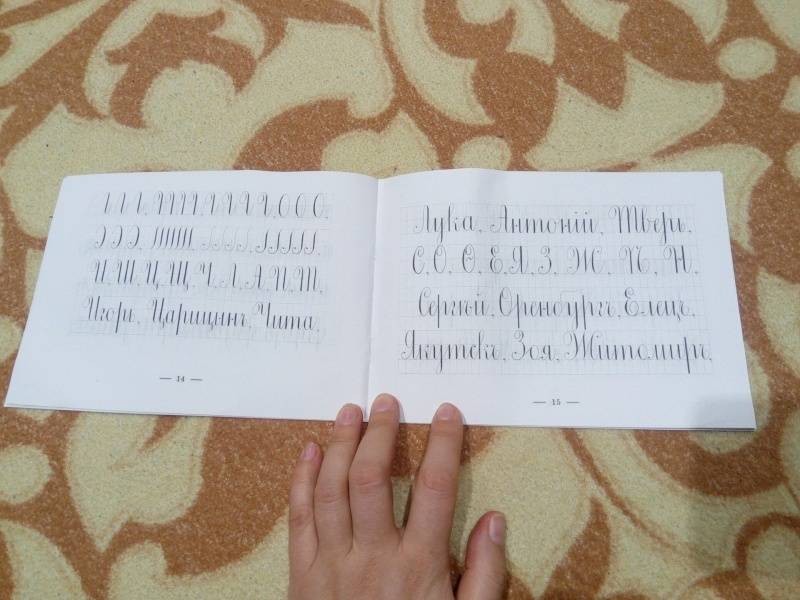 О О О,
И, Ш, Ц, Щ, Ч, Л, А, П, Т,
Игорь, Царицынъ, Чита.
— 14 —
Лука, Антоній, Тверь,
С, О, Ѳ, Е, Я, З, Ж, Ѣ, Н,
Сергѣй, Оренбургъ, Елецъ,
Якутскъ, Зоя, Житомиръ,
— 15 —